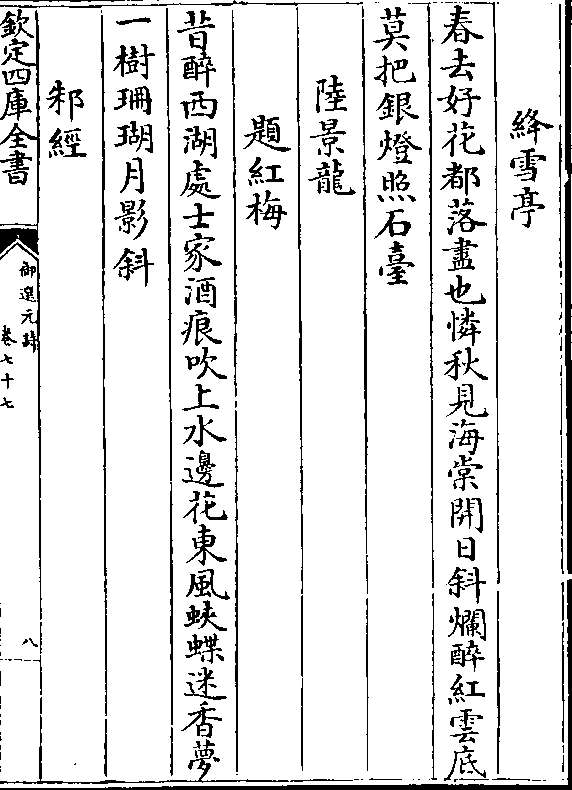 絳雪亭
春去好花都落盡也憐秋見海棠開日斜爛醉紅雲底
莫把銀燈照石臺
陸景龍
題紅梅
昔醉西湖處士家酒痕吹上水邊花東風蛺蝶迷香夢
一樹珊瑚月影斜
邾經
欽定四庫全書
御選元詩
卷七十七
八